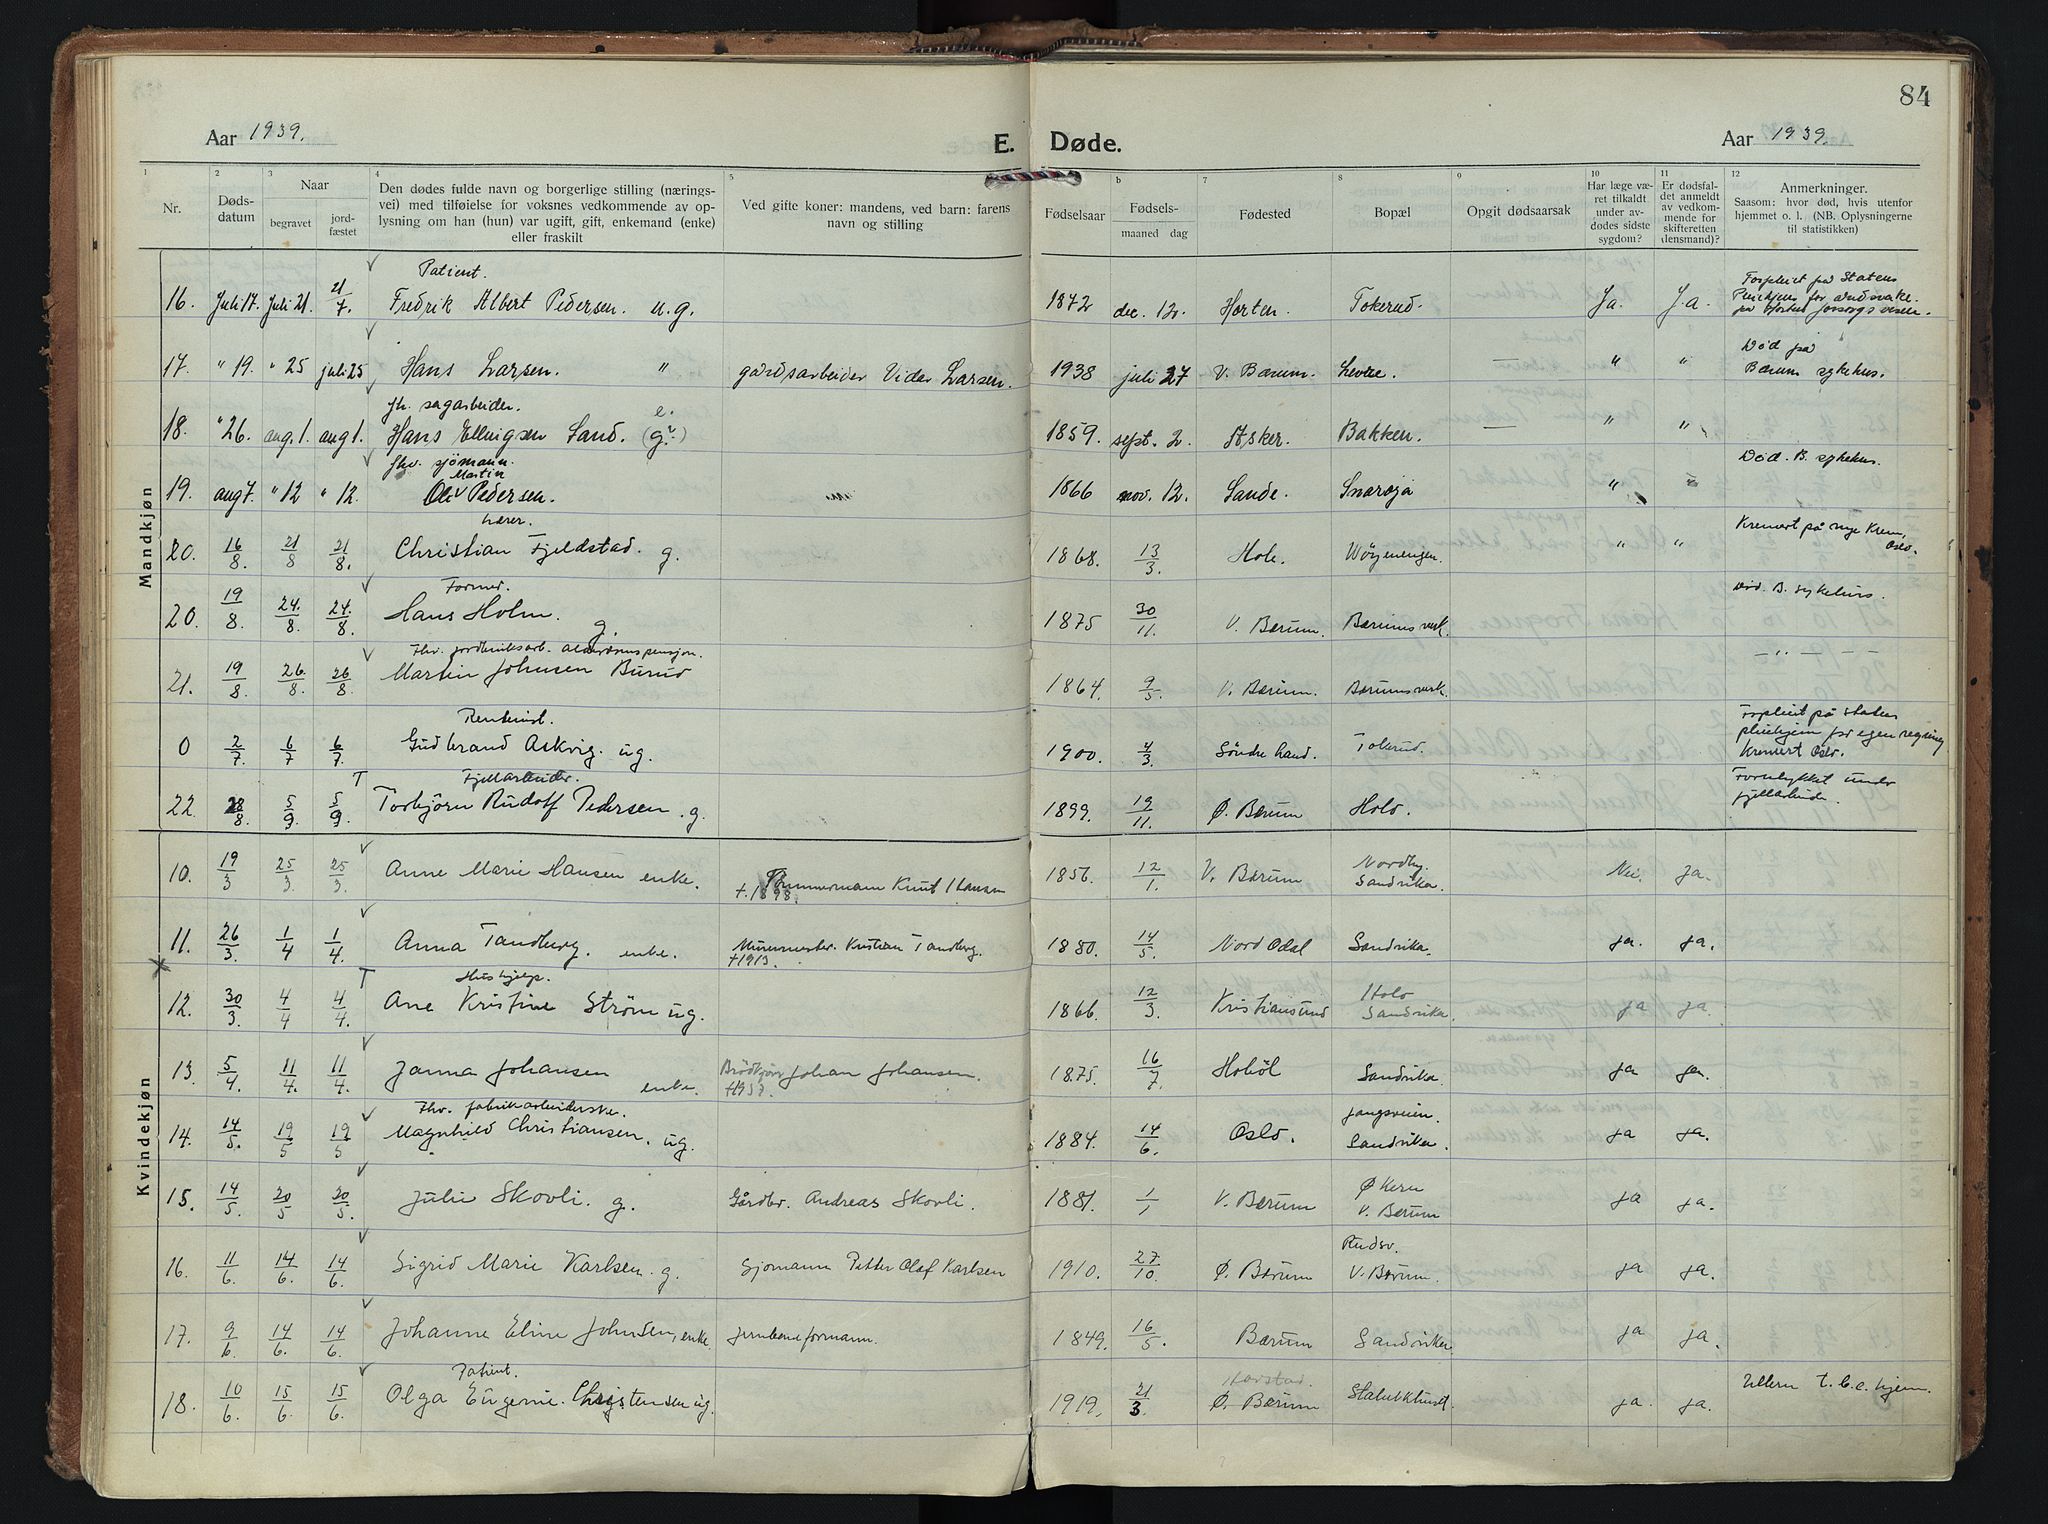 84
Aar 1939. E. Døde. Aar 1939.
1 2 3 4 5 b 7 8 9 10 11 12
Nr. Døds-datum Naar begravet jord-fæstet Den dødes fulde navn og borgerlige stilling (nærings-vei) med tilføielse for voksnes vedkommende av op-lysning om han (hun) var ugift, gift, enkemand (enke) eller fraskilt Ved gifte koner: mandens, ved barn: farens navn og stilling Fødselsaar Fødsels-maaned dag Fødested Bopæl Opgit dødsaarsak Har læge væ-ret tilkaldt under av-dødes sidste sygdom? Er dødsfal-det anmeldt av vedkom-mende for skifteretten (lensmand)? Anmerkninger. Saasom: hvor død, hvis utenfor hjemmet o. l. (NB. Oplysningerne til statistikken)
Mandkjøn
Patient.
16. Juli 17. Juli 21. 21/7. Fredrik Albert Pedersen. u.g. 1872 dec. 12. Horten. Tokerud. Ja. Ja. Forpleiet på Statens
17. " 19. " 25 juli 25 Hans Larsen. " gårdsarbeider Vidar Larsen. 1938 juli 27 V. Bærum. Levre. — " " Død på Bærum sykehus.
fh. sagarbeider.
18. " 26. aug. 1. aug 1. Hans Ellingsen Sand. e. (g?) 1859. sept. 2. Asker. Bakken. — " "
fhv. sjømann.
Martin
19. aug 7. " 12 " 12. Ole Pedersen. 1866 nov. 12. Sande. Snarøja " " Død. B. sykehus.
Lærer.
20. 16/8 21/8 21/8. Christian Fjeldstad. g. 1868. 13/3. Hole. " " Kremert på nye Krem. Oslo.
Former.
20. 19/8. 24./8. 24./8. Hans Holm. g. 1875 30/11. V. Bærum. Bærumsverk. Død. B. sykehus.
21. 19/8 26./8. 26/8. Martin Johnsen Burud 1864. 9/5. V. Bærum. Bærumsverk. — " — — —
Rentenist.
0 2/7. 6/7 6/7. Gudbrand Askvig. ug. 1900. 4/3. Søndre Land. Tokerud. Forpleiet på statens pleiehjem for egen regning Kremert Oslo.
T Fjellarbeider.
22. 28/8. 5/9 5/9. Torbjörn Rudolf Pedersen. g. 1899. 19/11. Ø. Bærum Holo. Forulykket under fjellarbeide.
Kvindekjøn
10. 19/3 25/3. 25/3. Anne Marie Hansen enke. Tømmermann Knut Hansen +1898. 1856. 12/1. V. Bærum Nordby. Sandvika. Nei. ja.
11. 26/3. 1/4 1/4. Anna Tandberg. enke. Murermester. Kristian Tandberg. +1913. 1880. 14/5. Nord Odal Sandvika. ja. ja.
T Hushjelp.
12. 30/3. 4/4 4/4. Ane Kristine Strøm ug. 1866. 12/3. Kristiansund Holo Sandvika. ja ja.
13. 5/4. 11/4. 11/4. Janna Johansen enke. Brödkjører Johan Johansen. +1937. 1875. 16/7. Hobøl Sandvika. ja ja.
Fhv. fabrikarbeiderske.
14. 14/5. 19/5 19/5 Magnhild Christiansen. ug. 1884. 14/6. Oslo. Jongsveien. Sandvika. ja ja.
15. 14/5. 20/5 20/5. Julie Skovli. g. Gårdbr. Andreas Skovli. 1881. 1/1 V. Bærum Ø Kern V. Bærum ja ja.
16. 11/6. 14/6. 14/6. Sigrid Marie Karlsen. g. Sjømann Petter Olaf Karlsen 1910. 27./10. Ø. Bærum Rudsv. V. Bærum. ja ja.
17. 9/6. 14/6. 14/6. Johanne Eline Johnsen, enke jernbaneformann. 1849. 16/5. Bærum Sandvika. ja ja.
Patient.
18. 10/6. 15/6. 15/6. Olga Eugenie Christensen ug. 1919. 21/3. Harstad. Ø. Bærum ja ja. Ullern t.b.c. hjem.